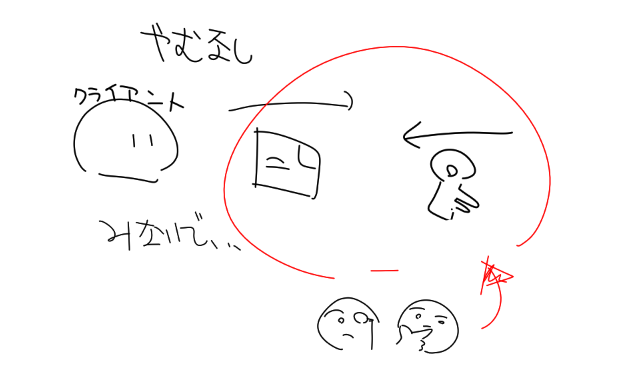 やむなし
クライアント
みないで、、、